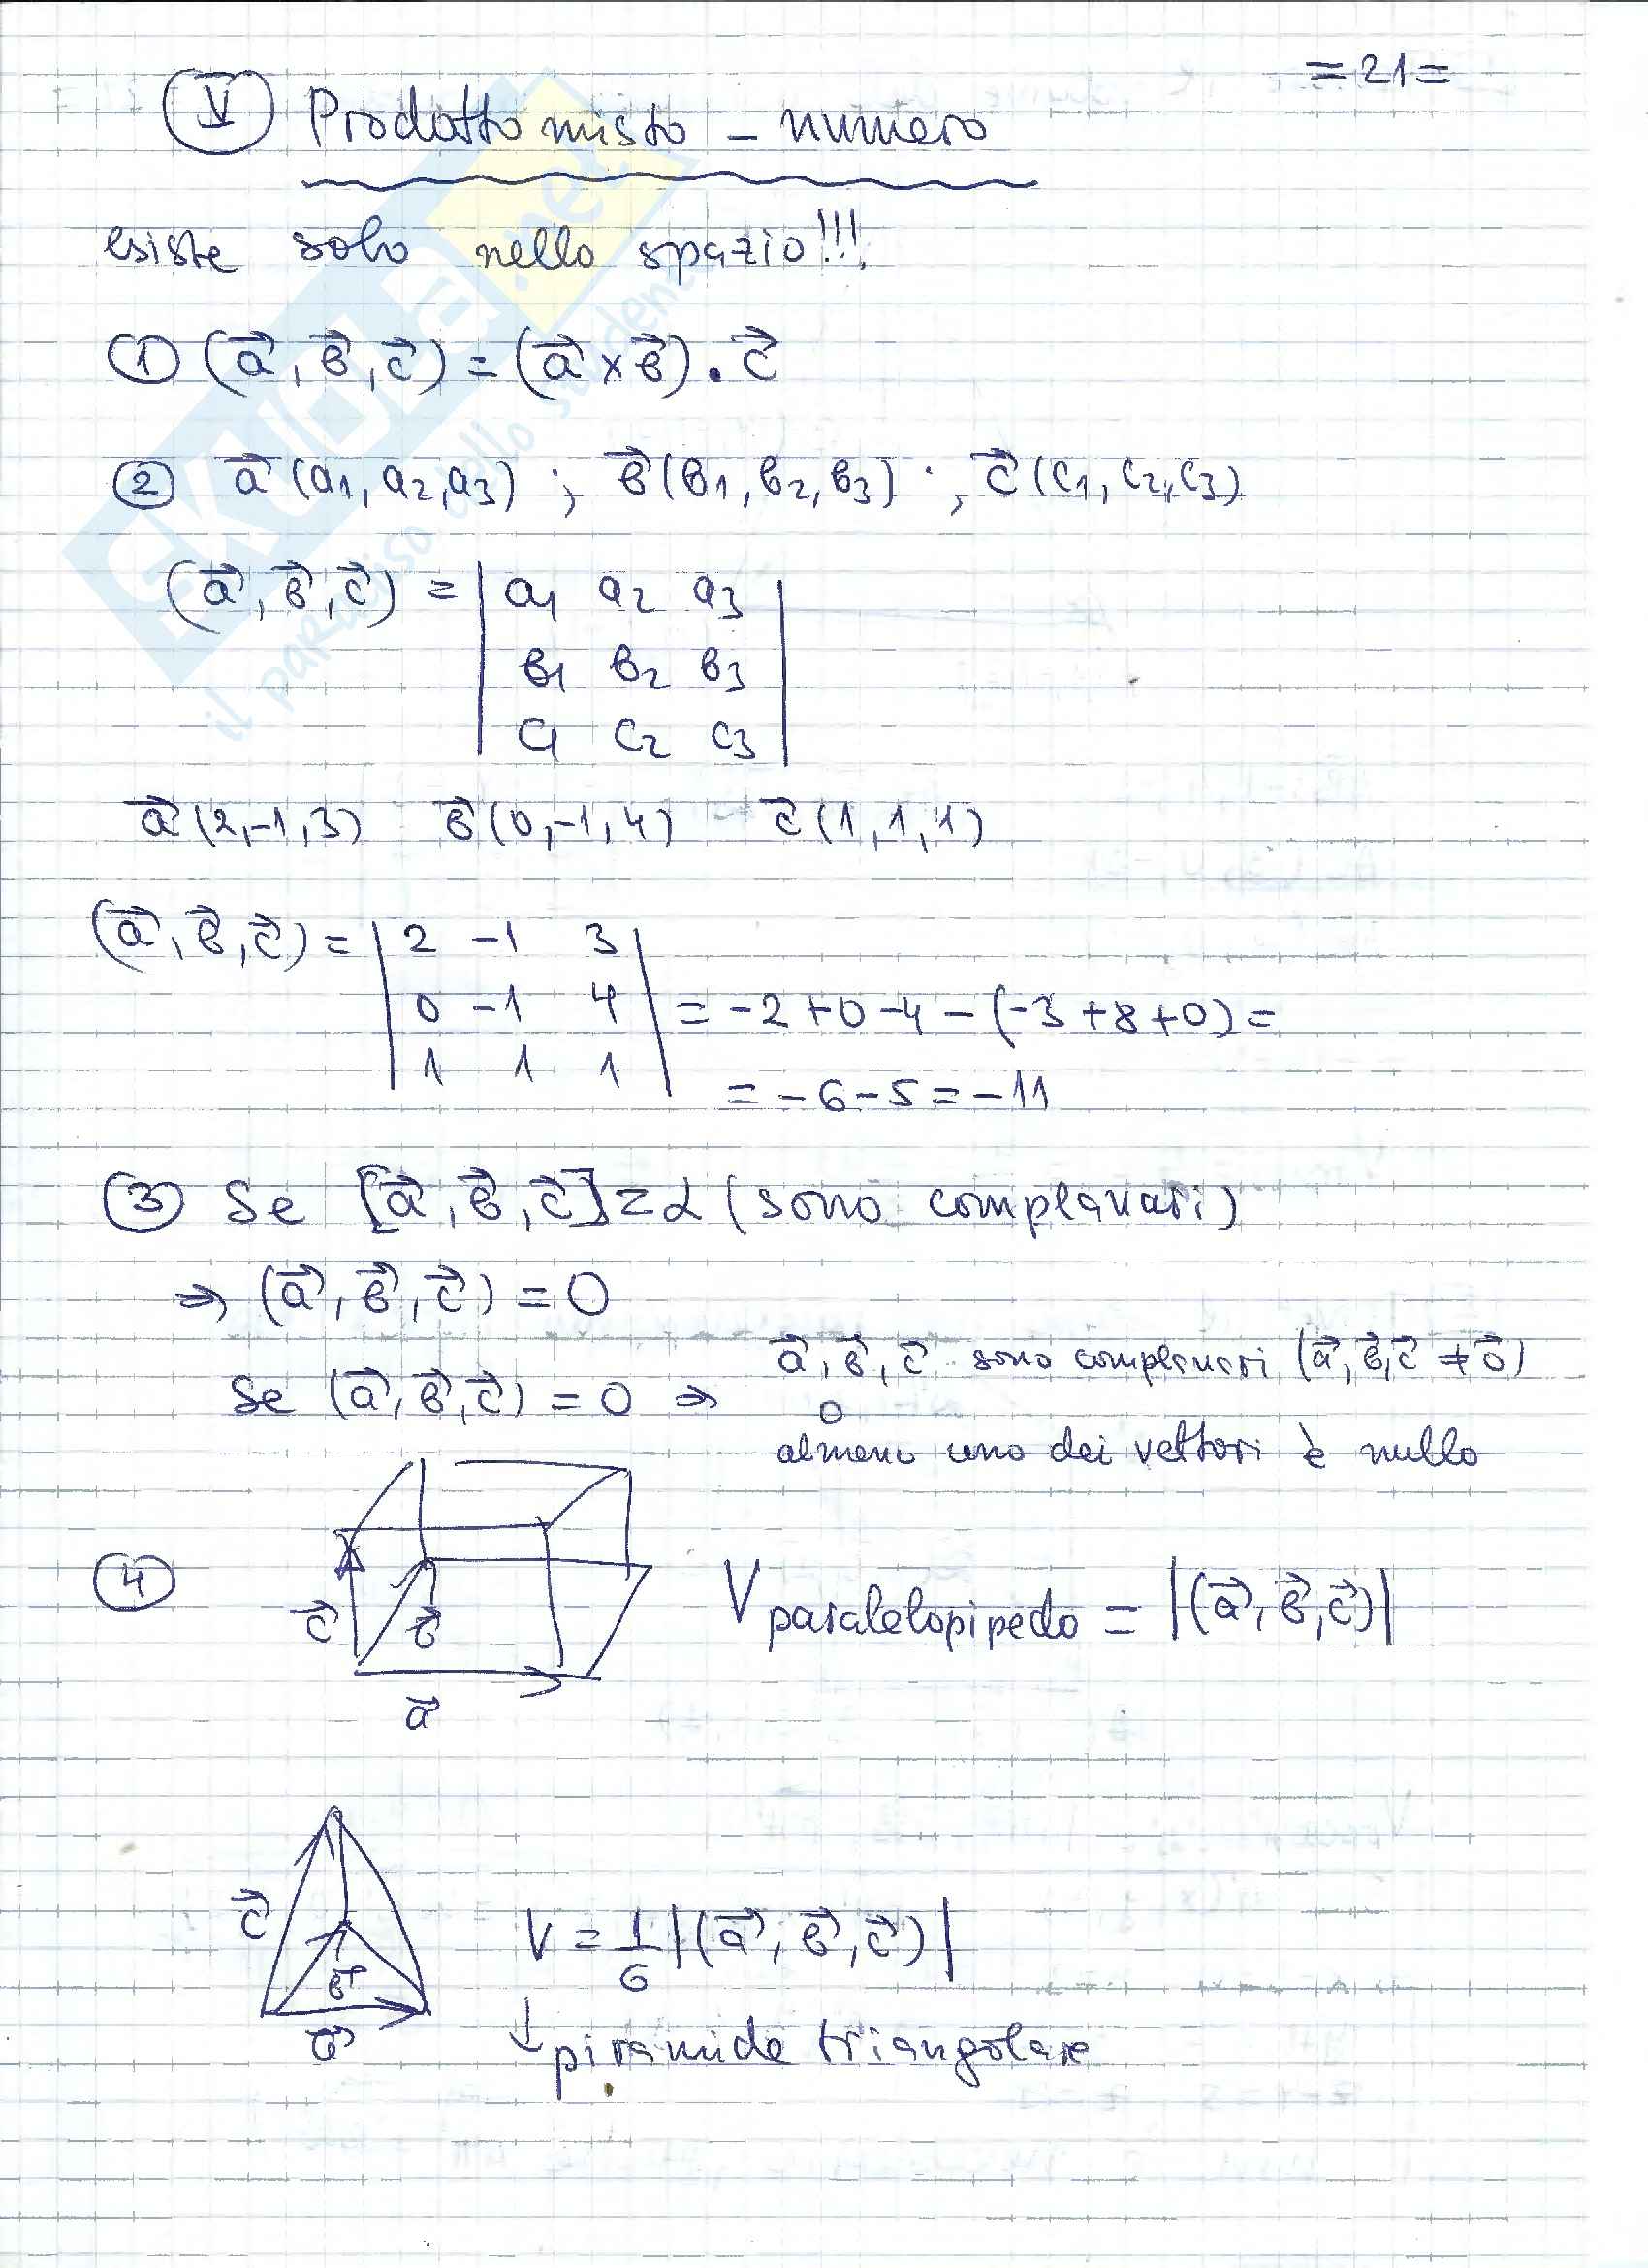 =21=
V Prodotto misto - numero
esiste solo nello spazio!!!
① (a⃗, b⃗, c⃗) = (a⃗ × b⃗) • c⃗
② a⃗ (a₁, a₂, a₃) ; b⃗ (b₁, b₂, b₃) ; c⃗ (c₁, c₂, c₃)
(a⃗, b⃗, c⃗) = | a₁ a₂ a₃ |
b₁ b₂ b₃
c₁ c₂ c₃
a⃗ (2,-1,3) b⃗ (0,-1,4) c⃗ (1,1,1)
(a⃗, b⃗, c⃗) = | 2 -1 3 |
0 -1 4 = -2+0-4-(-3+8+0)=
1 1 1
= -6-5=-11
③ Se [a⃗, b⃗, c⃗] = α (sono complanari)
⇒ (a⃗, b⃗, c⃗) = 0
Se (a⃗, b⃗, c⃗) = 0 ⇒ a⃗, b⃗, c⃗ sono complanari (a⃗, b⃗, c⃗ ≠ 0⃗)
o
almeno uno dei vettori è nullo
④ c⃗ b⃗ a⃗ V paralelopipedo = |(a⃗, b⃗, c⃗)|
c⃗ b⃗ a⃗ V = 1/6 |(a⃗, b⃗, c⃗)|
↓ piramide triangolare
SKUOLA.net
il paradiso dello studente